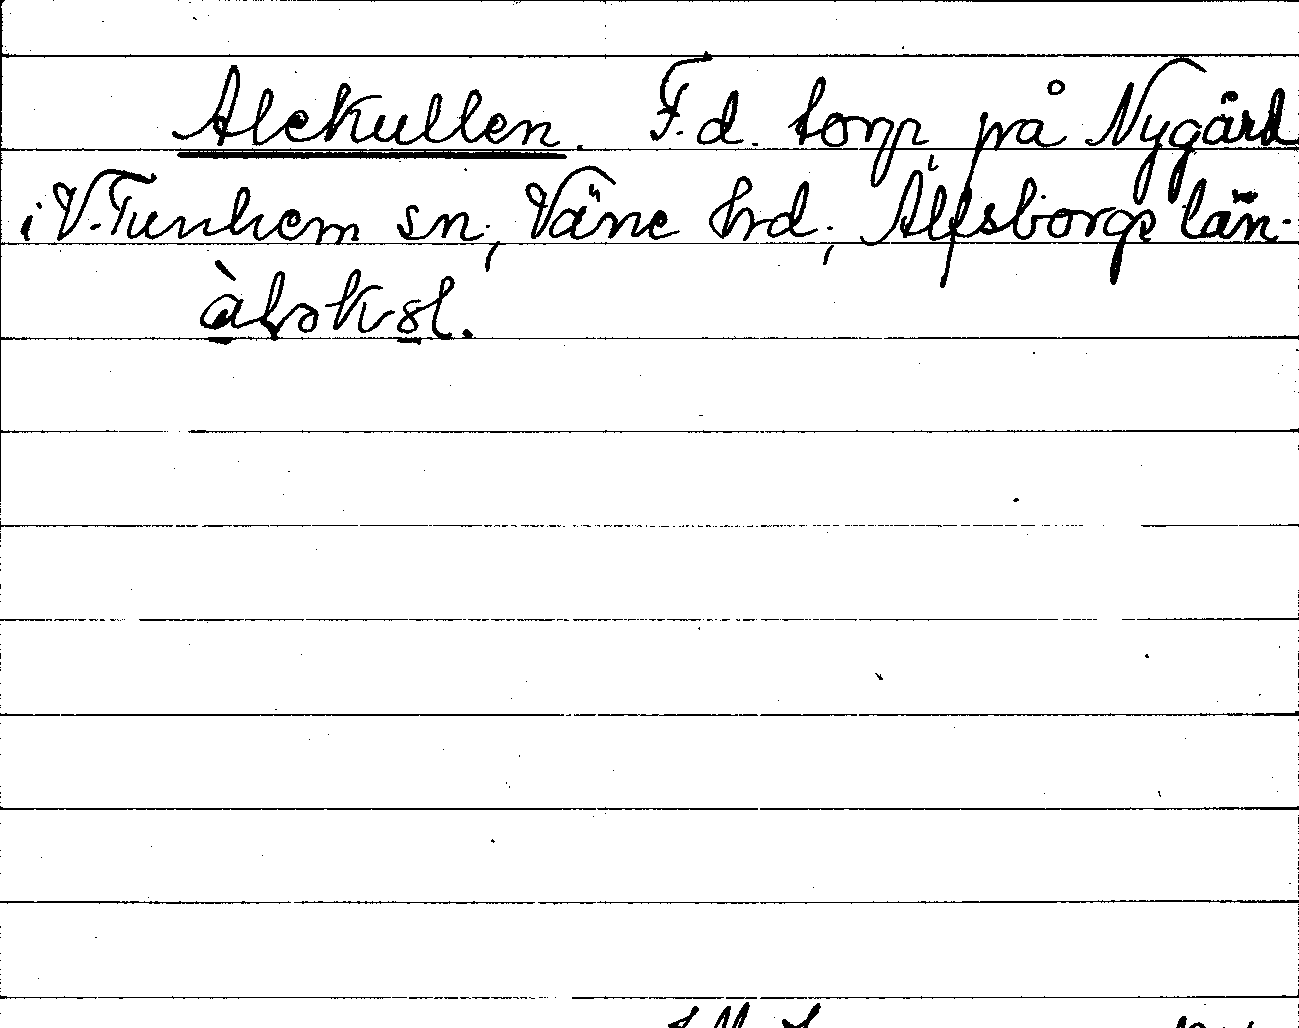 Alekullen. F.d. torp på Nygård
i V. Tunhem sn, Väne hrd, Älfsborgs län.